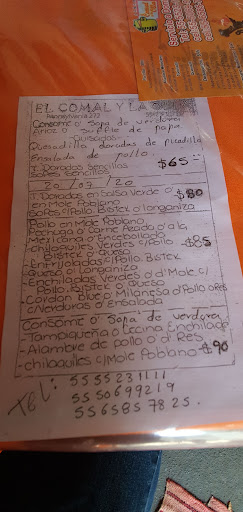 EL COMAL Y LA
Pennsylvania 272
Consomé o Sopa de verduras
Arroz o Sufflé de papa
-Guisados-
Quesadillas doradas de picadillo
Ensalada de pollo.
T. Doradas Sencillos
Sopes Sencillos $65=
20/07/20
T. Doradas en Salsa Verde o
Mole Poblano $80
Sopes c/Pollo Bistek o longaniza
Pollo en Mole Poblano
Lengua o Carne Asada o a la
Mexicana o Encebollada
-chilaquiles Verdes c/Pollo $85
Bistek o Queso
-Enfrijoladas c/Pollo. Bistek
Queso o Longaniza
-Enchiladas Verdes o d'Mole c/
Pollo. Bistek o Queso
-Cordon Blue o Milanesa d'Pollo o Res
c/Verduras o Ensalada
Consomé o Sopa de verduras
-Tampiqueña o Cecina Enchilada
-Alambre de pollo o d' Res
-chilaquiles c/Mole Poblano $90
TEL: 5555231111
5550699219
5565857825.